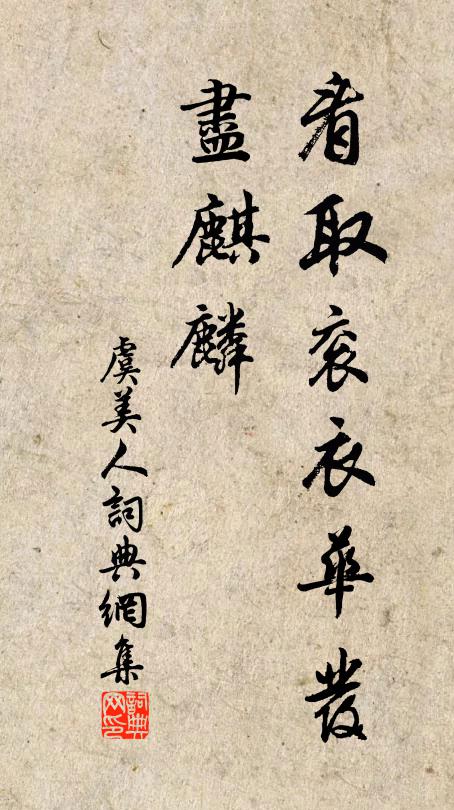 看取衮衣華發
盡麒麟
虞美人詞典網集
詞典网印